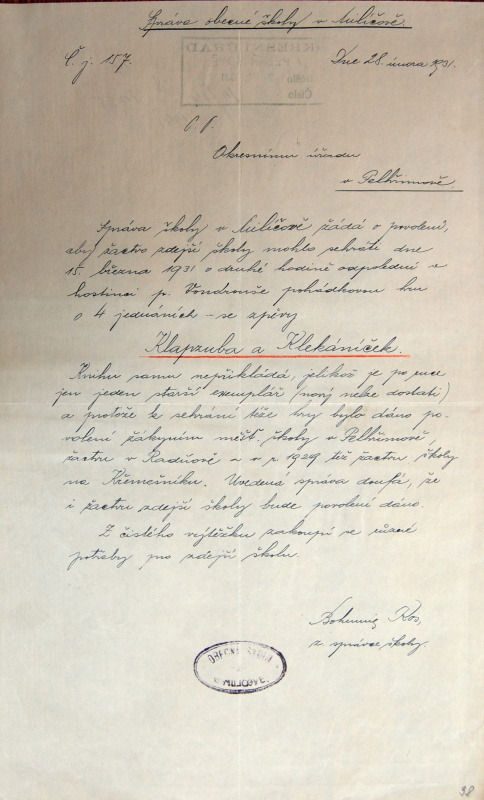 Správa obecné školy v Miličově.
Č. j. 157.
Dne 28. února 1931.
OKRESNÍ ÚŘAD
Došlo
Číslo
P. T.
Okresnímu úřadu
v Pelhřimově.
Správa školy v Miličově žádá o povolení,
aby žactvo zdejší školy mohlo sehráti dne
15. března 1931 o druhé hodině odpolední v
hostinci p. Vondrouše pohádkovou hru
o 4 jednáních – se zpěvy
Klapzuba a Klekáníček.
Knihu samu nepřikládá, jelikož je po ruce
jen jeden starší exemplář (nový nelze dostati)
a protože ke sehrání téže hry bylo dáno po-
volení žákyním měšť. školy v Pelhřimově,
žactvu v Radňově a v r 1929 též žactvu školy
na Křemešníku. Uvedená správa doufá, že
i žactvu zdejší školy bude povolení dáno.
Z čistého výtěžku zakoupí se různé
potřeby pro zdejší školu.
Bohumig Kos,
z. správce školy.
OBECNÁ ŠKOLA
98